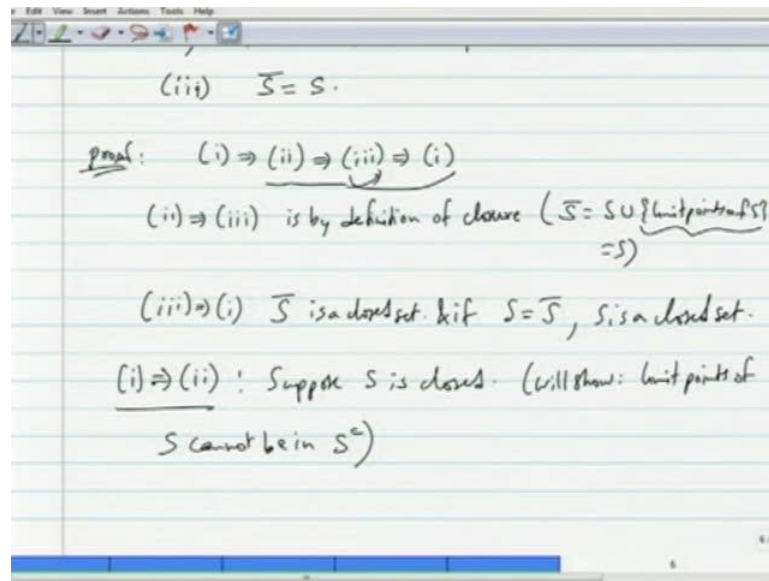 Edit View Insert Actions Tools Help
(iii) S̅ = S.
proof: (i) ⇒ (ii) ⇒ (iii) ⇒ (i)
(ii) ⇒ (iii) is by definition of closure ( S̅ = S ∪ {limit points of S}
= S)
(iii) ⇒ (i) S̅ is a closed set. & if S = S̅, S is a closed set.
(i) ⇒ (ii) : Suppose S is closed. (will show: limit points of
S cannot be in Sᶜ)
6